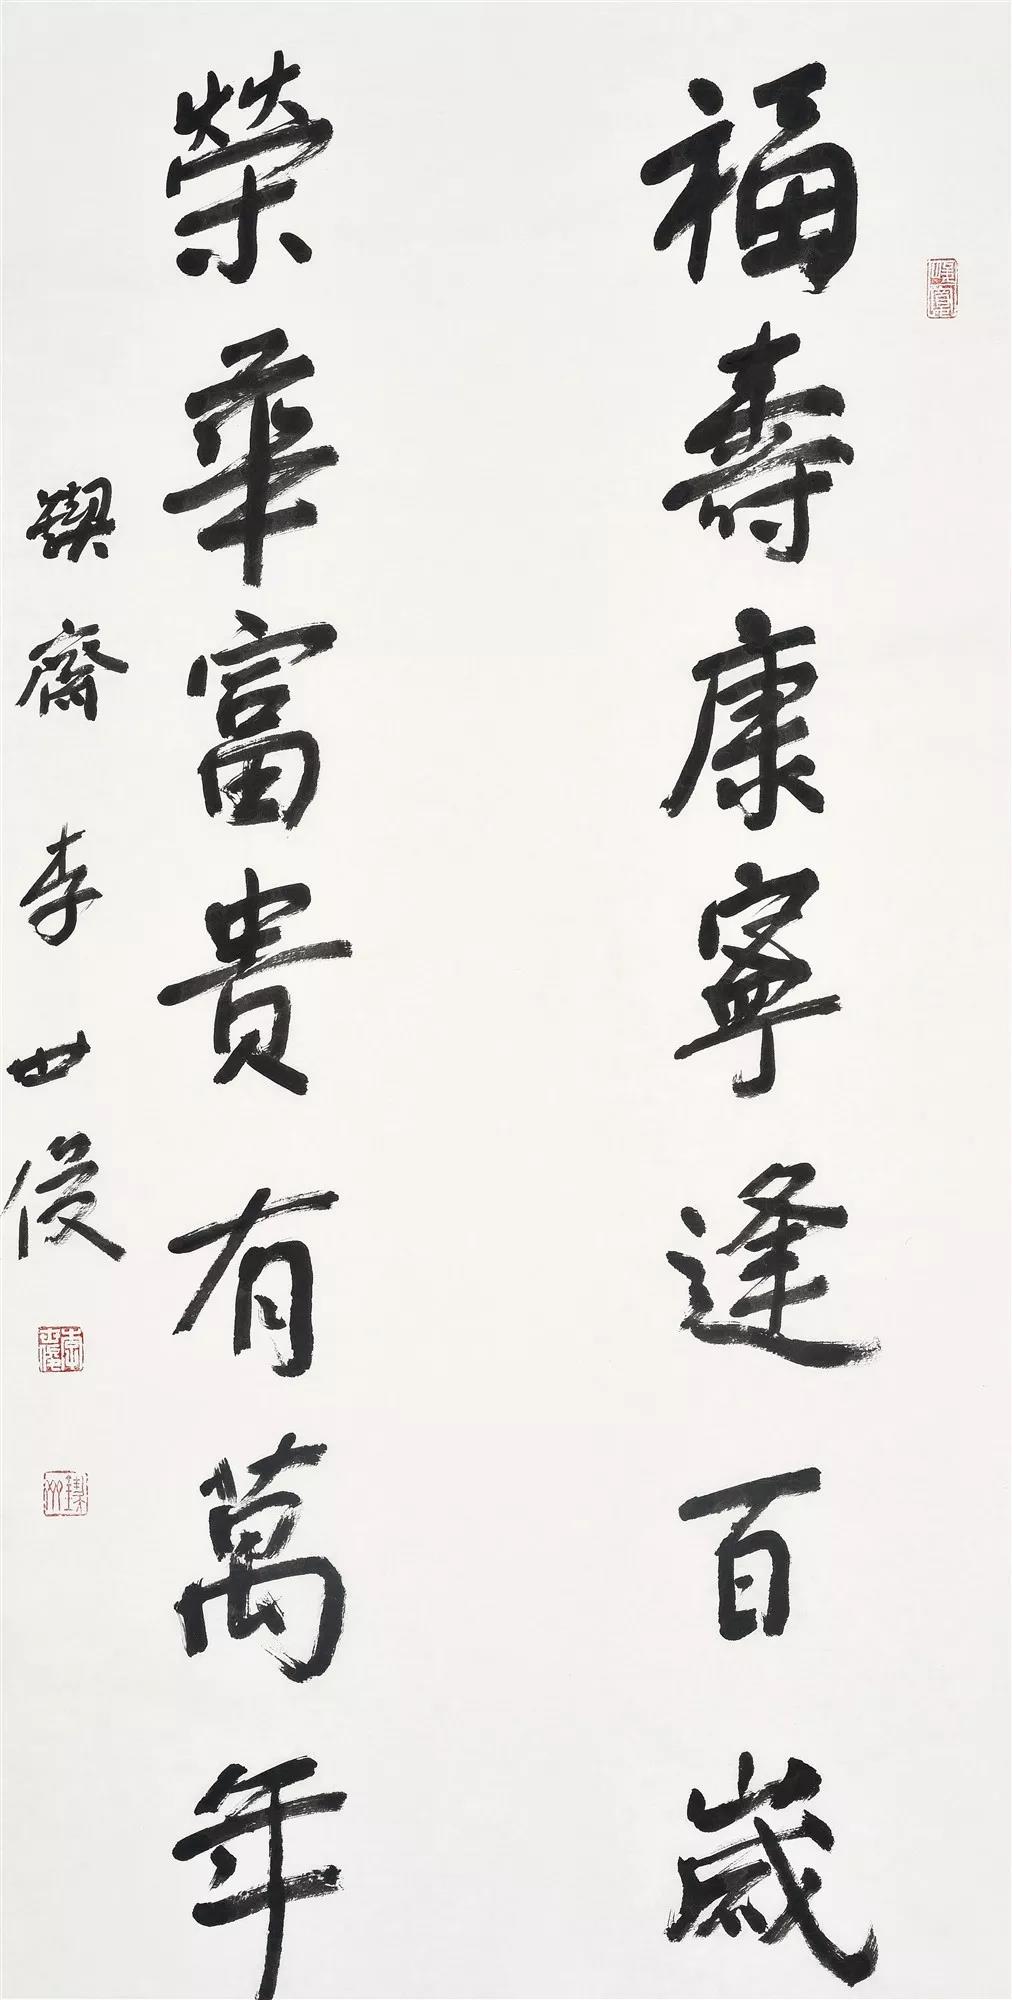 福壽康寧逢百歲
榮華富貴有萬年
鍥齋李世俊